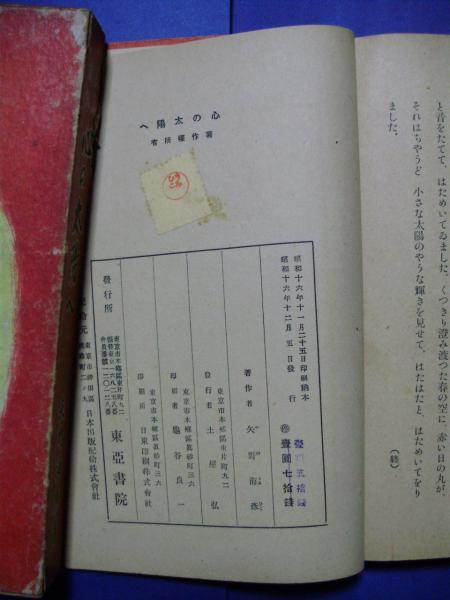 と音をたてて、はためいてゐました。くつきり澄み渡つた春の空に、赤い日の丸が、
それはちやうど 小さな太陽のやうな輝きを見せて、はたはたと、はためいてをり
ました。
(終)
心の太陽へ
著作權所有
昭和十六年十一月二十五日印刷納本
昭和十六年十二月五日發行
壹圓七拾錢
著作者
東京市本郷區東片町九二
發行者 土屋弘
東京市本郷區眞砂町三六
印刷者 龜谷良一
東京市本郷區眞砂町三六
印刷所 日東印刷株式會社
發行所
東京市本郷區東片町九二
東亞書院
東京市神田區
日本出版配給株式會社